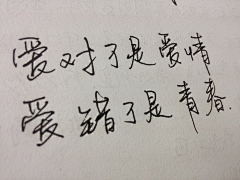 爱对了是爱情
爱错了是青春.